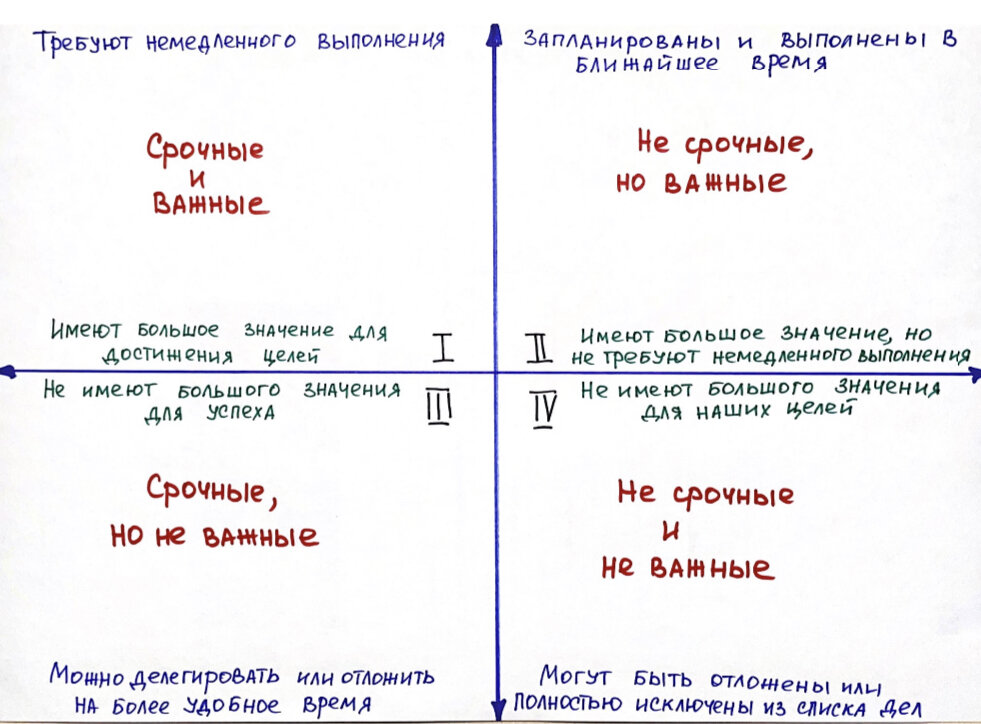 Требуют немедленного выполнения
Срочные
и
важные
Имеют большое значение для
достижения целей
I
Запланированы и выполнены в
ближайшее время
Не срочные,
но важные
II
Имеют большое значение, но
не требуют немедленного выполнения
Не имеют большого значения
для успеха
III
Срочные,
но не важные
Можно делегировать или отложить
на более удобное время
IV
Не имеют большого значения
для наших целей
Не срочные
и
не важные
Могут быть отложены или
полностью исключены из списка дел